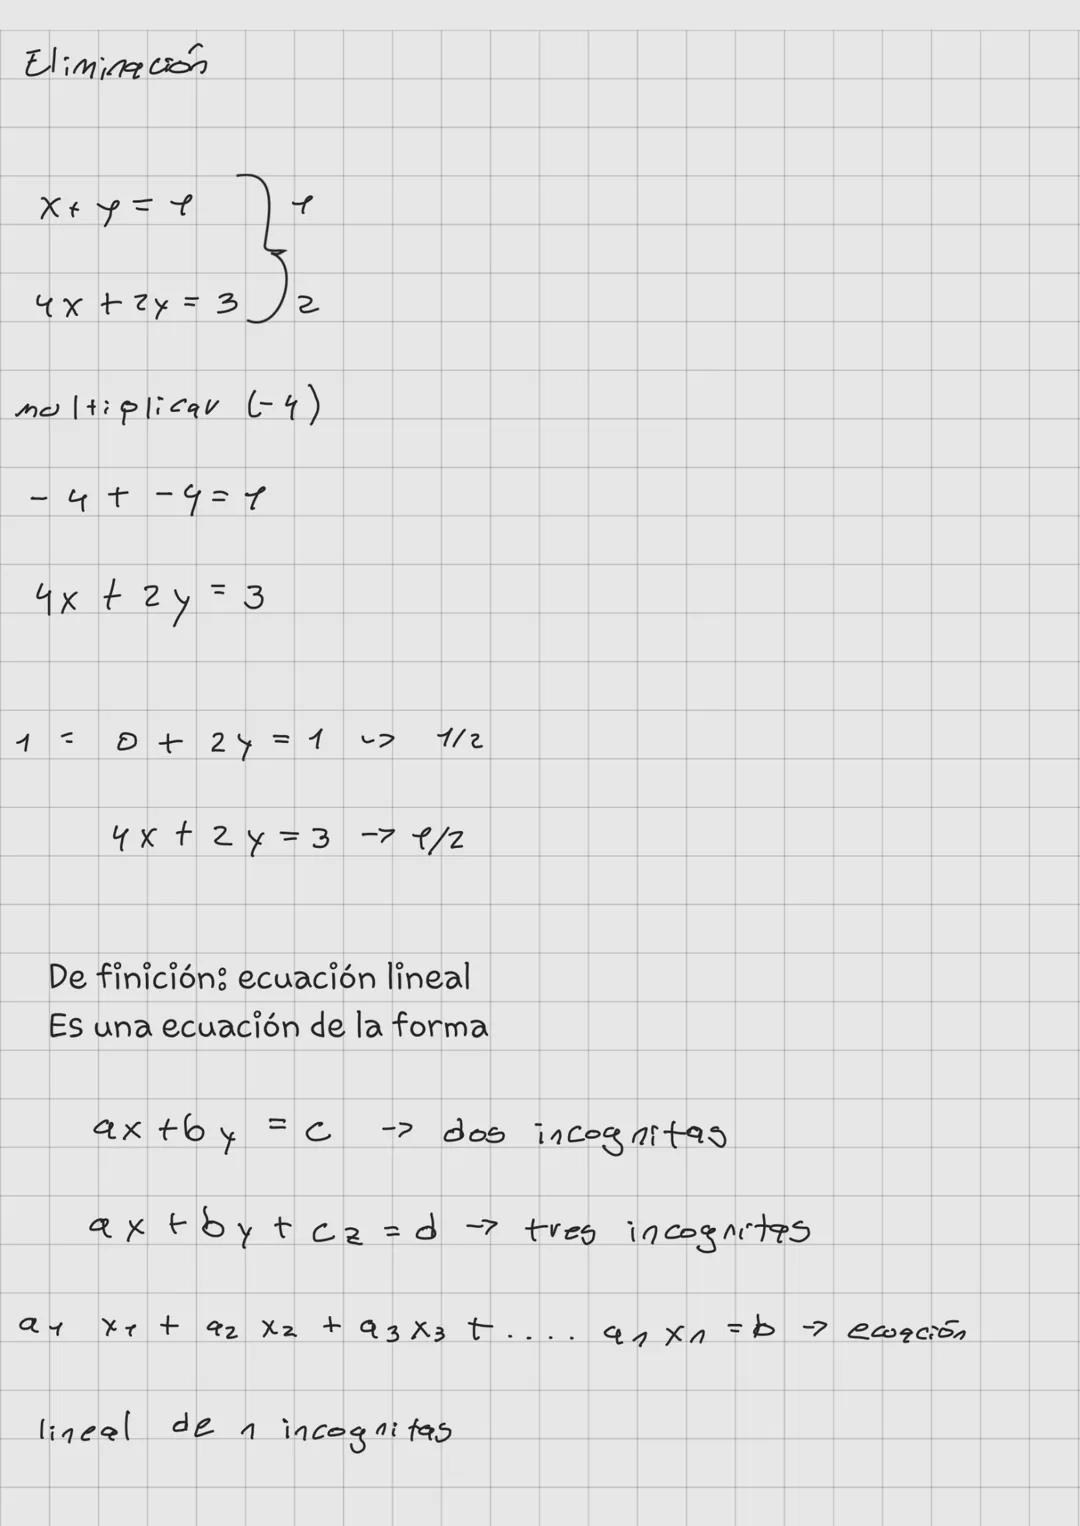 Eliminación
x + y = 1 } 1
4x + 2y = 3 } 2
multiplicar (-4)
- 4 + - 4 = 1
4x + 2y = 3
1 = 0 + 2y = 1 -> 1/2
4x + 2y = 3 -> 1/2
De finición: ecuación lineal
Es una ecuación de la forma
ax + by = c -> dos incognitas
ax + by + cz = d -> tres incognitas
a1 x1 + a2 x2 + a3 x3 + .... an xn = b -> ecuación
lineal de n incognitas